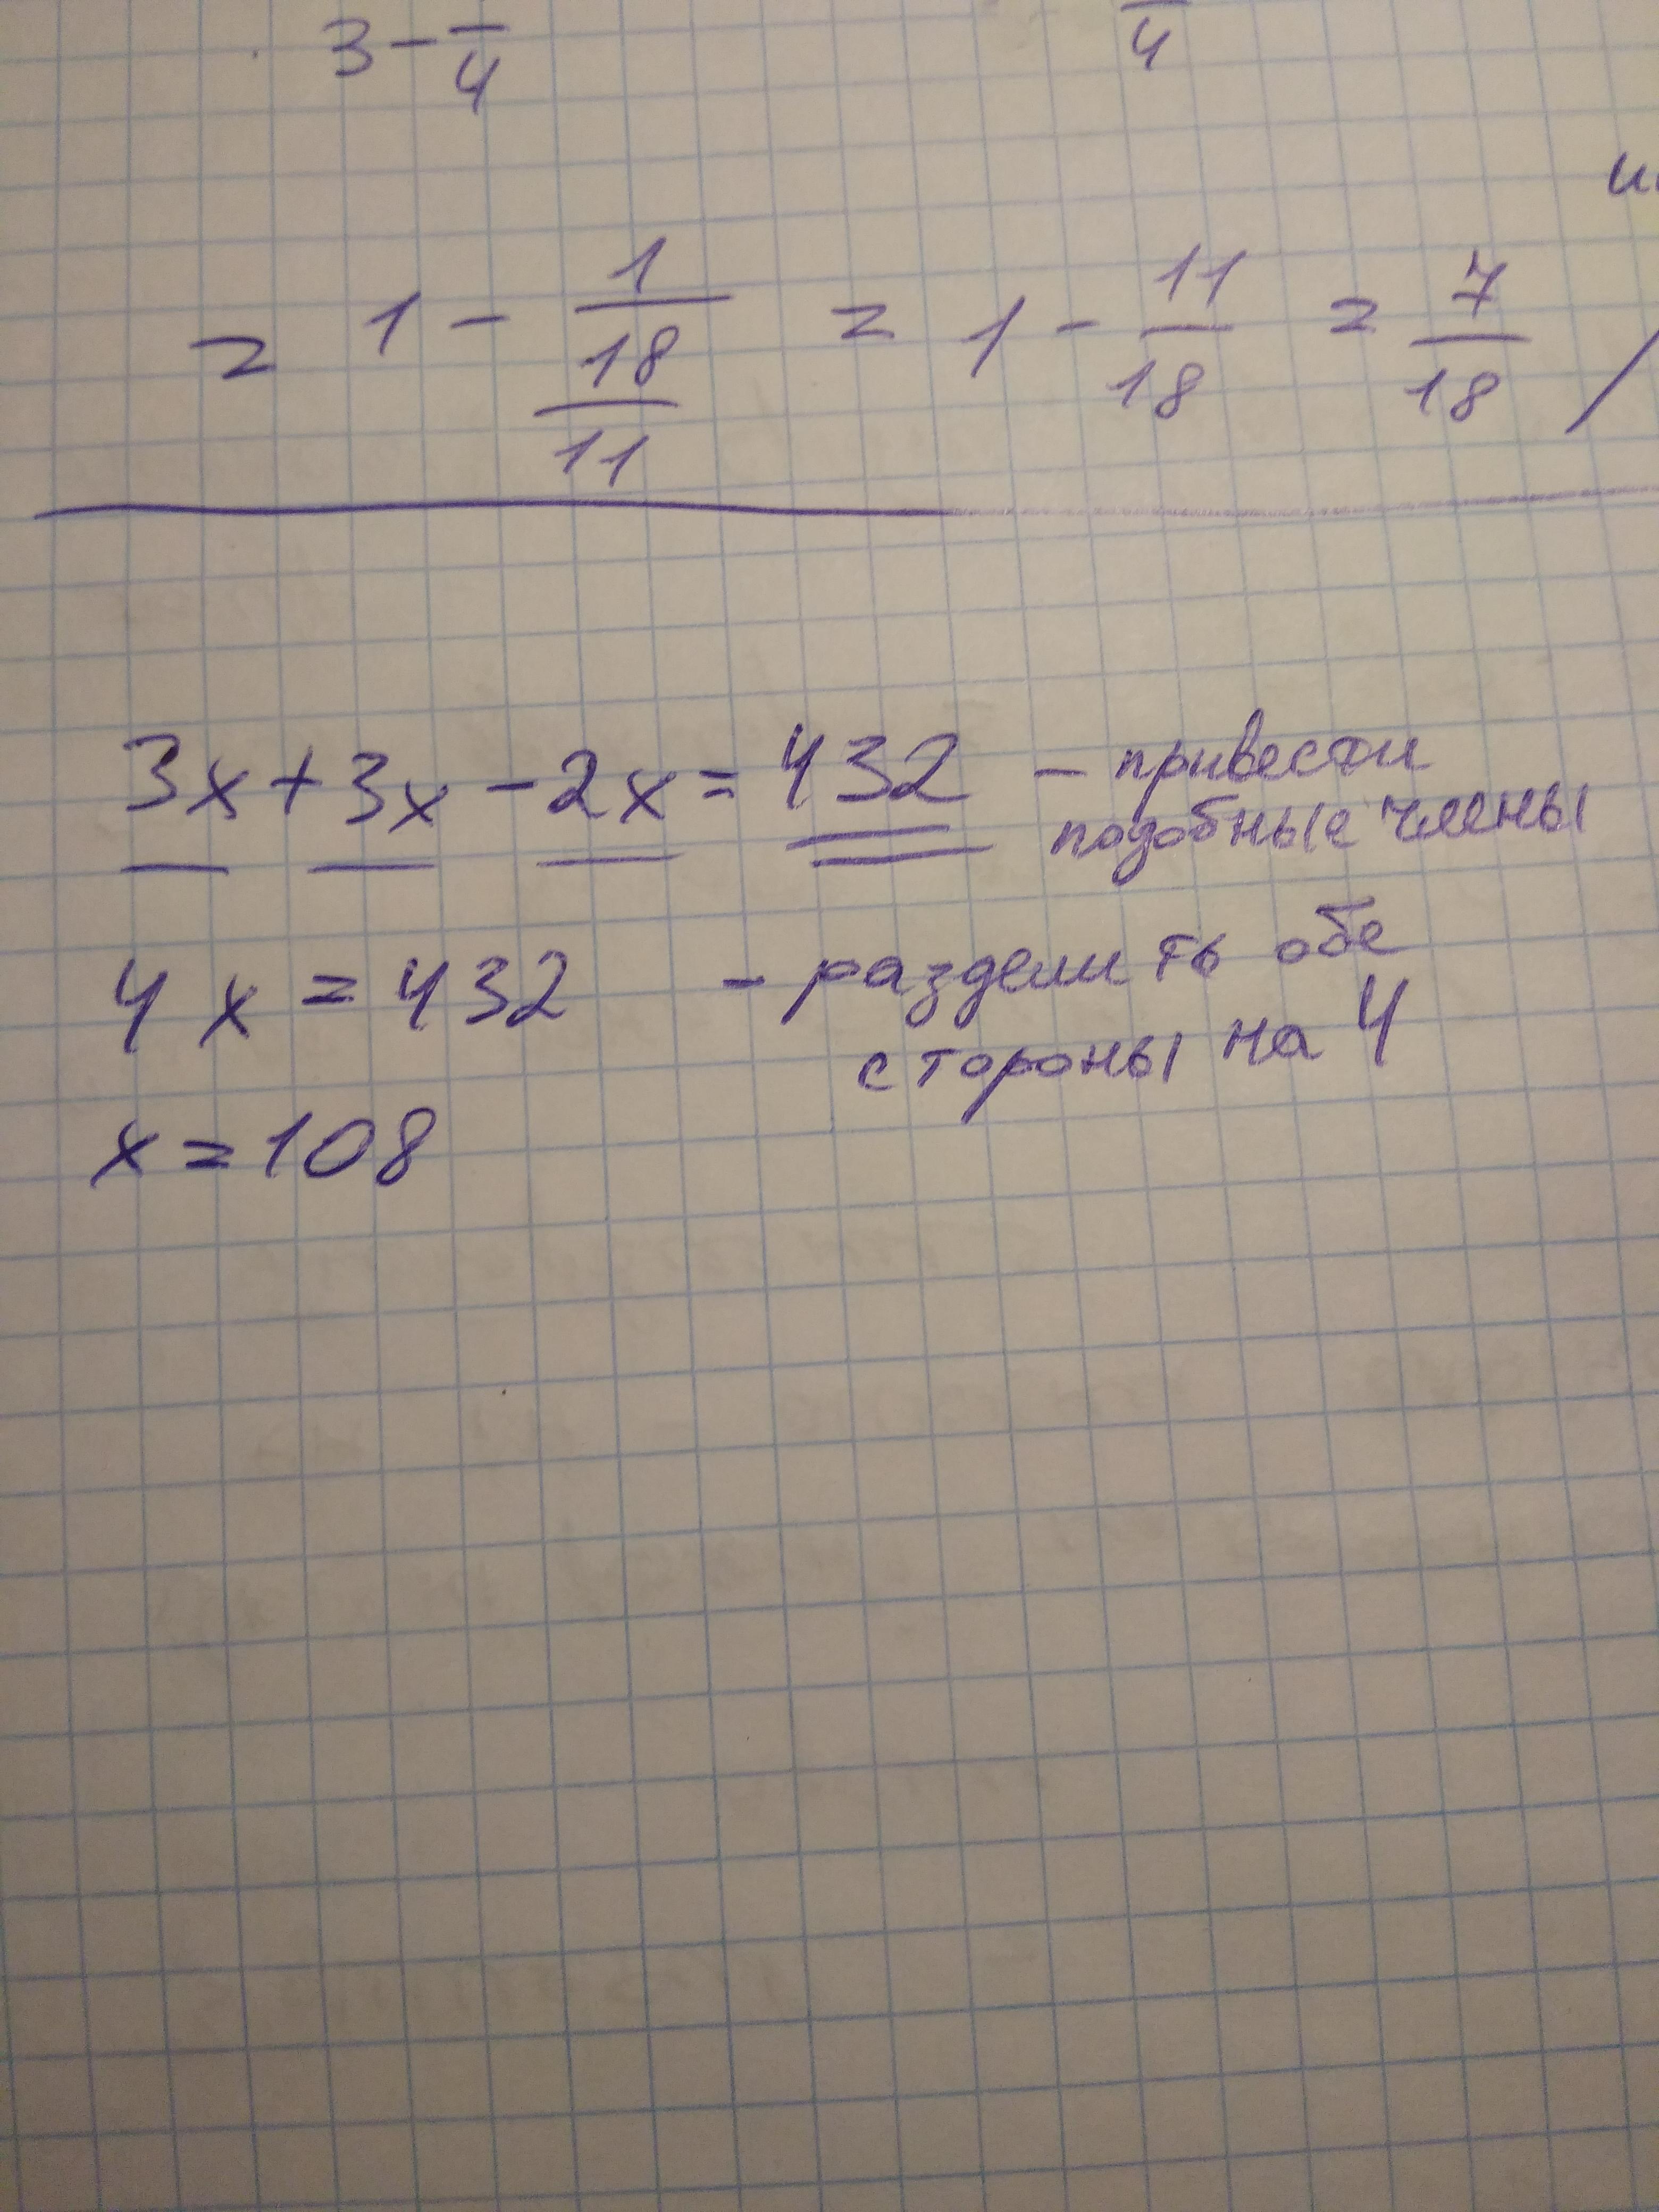 3 - —/4
—/4
= 1 - 1/(18/11) = 1 - 11/18 = 7/18 /
3x + 3x - 2x = 432 - привести
подобные члены
4x = 432 - разделить обе
стороны на 4
x = 108